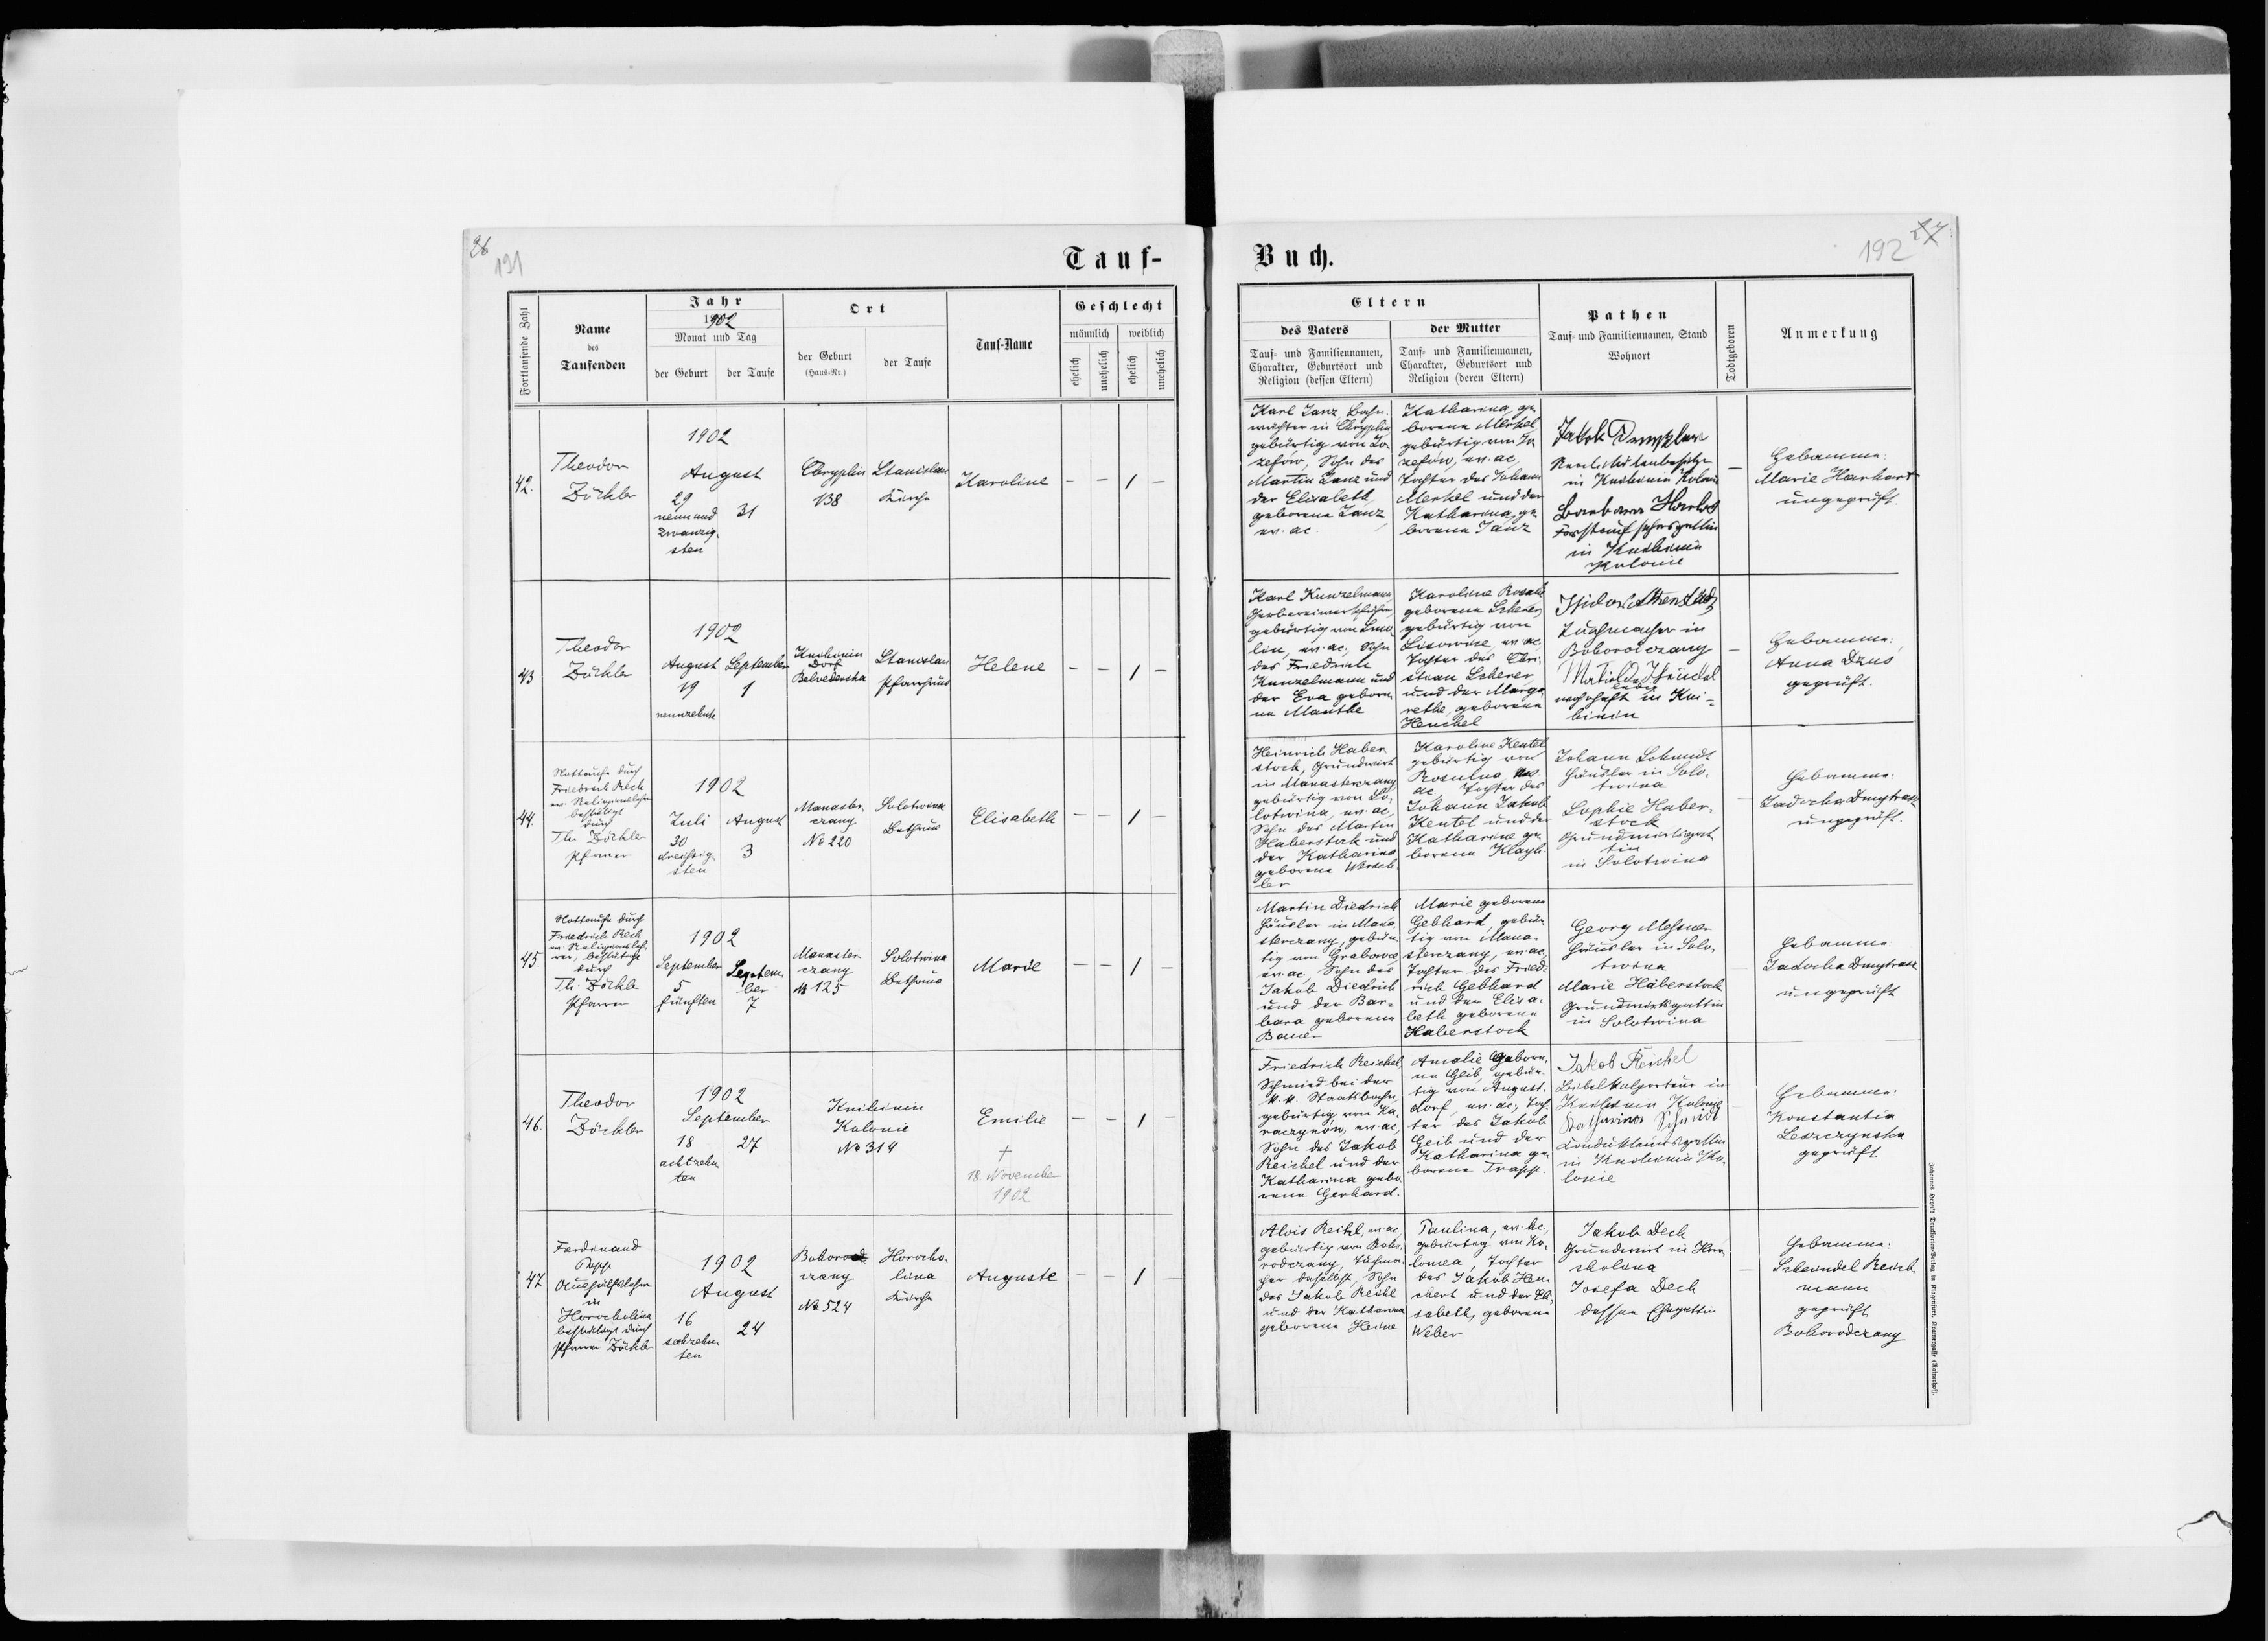 26
191
Tauf-
Fortlaufende Zahl
Name
des
Taufenden
Jahr
1902
Monat und Tag
der Geburt
der Taufe
Ort
der Geburt
(Haus-Nr.)
der Taufe
Tauf-Name
Geschlecht
männlich
weiblich
ehelich
unehelich
ehelich
unehelich
42.
Theodor
Zöckler
1902
August
29
neunund
zwanzig-
sten
31
Chryplin
138
Stanislau
Kirche
Karoline
— — / —
43
Theodor
Zöckler
1902
August
19
neunzehnte
September
1
Knihinin
Dorf
Belvederska
Stanislau
Pfarrhaus
Helene
— — / —
44.
Nottaufe durch
Friedrich Rech
ev. Religionslehrer
bestätigt
durch
Th. Zöckler
Pfarrer
1902
Juli
30
dreissig-
sten
August
3
Manaster-
czany
No 220
Solotwina
Bethaus
Elisabeth
— — / —
45.
Nottaufe durch
Friedrich Rech
ev. Religionsleh-
rer, bestätigt
durch
Th. Zöckler
Pfarrer
1902
September
5
fünften
Septem-
ber
7
Manaster-
czany
No 125
Solotwina
Bethaus
Marie
— — / —
46.
Theodor
Zöckler
1902
September
18
achtzehn-
ten
27
Knihinin
Kolonie
No 314
Emilie
†
18. November
1902
— — / —
47
Ferdinand
Aushülfslehrer
in
Horocholina
bestätigt durch
Pfarrer Zöckler
1902
August
16
sechzehn-
ten
24
Bohorod-
czany
No 524
Horocho-
lina
Kirche
Auguste
— — / —
Buch.
192
Eltern
des Vaters
Tauf- und Familiennamen,
Charakter, Geburtsort und
Religion (dessen Eltern)
der Mutter
Tauf- und Familiennamen,
Charakter, Geburtsort und
Religion (deren Eltern)
Pathen
Tauf- und Familiennamen, Stand
Wohnort
Todtgeboren
Anmerkung
Karl Janz, Bahn-
wächter in Chryplin
gebürtig von Jo-
zefów, Sohn des
Martin Janz und
der Elisabeth,
geborene Janz,
ev. ac.
Katharina, ge-
borene Merkel,
gebürtig von Jo-
zefów, ev. ac,
Tochter des Johann
Merkel und der
Katharina, ge-
borene Janz
Jakob
Realitätenbesitzer
in Knihinin Kolonie
Barbara
in Knihinin
Kolonie
—
Hebamme:
Marie Hanhart
ungeprüft.
Karl Kunzelmann,
gebürtig von Smo-
lin, ev. ac., Sohn
des Friedrich
Kunzelmann und
der Eva gebore-
ne Manthe
Karoline Rosalie
geborene Scherer,
gebürtig von
ev. ac.
Tochter des Chri-
stian Scherer
und der Marga-
rethe, geborene
Henchel
Isidor
Tuchmacher in
Bohorodczany
Matilde
wohnhaft in Kni-
hinin
—
Hebamme:
Anna Dzus
geprüft.
Heinrich Haber-
stock, Grundwirt
in Manasterczany
gebürtig von So-
lotwina, ev. ac,
Sohn des Martin
Haberstock und
der Katharina
geborene Wersch-
ler
Karoline Keutel
gebürtig von
Rosulna, ev.
ac, Tochter des
Johann Jakob
Keutel und der
Katharina ge-
borene
Johann Schmidt
Häusler in Solo-
twina
Sophie Haber-
stock
Grundwirtsgat-
tin
in Solotwina
Hebamme:
Jadocha
ungeprüft.
Martin Diedrich
Häusler in Mana-
sterczany, gebür-
tig von Grabowce,
ev. ac., Sohn des
Jakob Diedrich
und der Bar-
bara geborene
Bauer
Marie geborene
Gebhard, gebür-
tig von Mana-
sterczany, ev. ac,
Tochter des Fried-
rich Gebhard
und der Elisa-
beth geborene
Haberstock
Georg
Häusler in Solo-
twina
Marie Haberstock
Grundwirtsgattin
in Solotwina
Hebamme:
Jadocha
ungeprüft
Friedrich Reichel,
Schmied bei der
k. k. Staatsbahn,
gebürtig von Ka-
raczynow, ev. ac,
Sohn des Jakob
Reichel und der
Katharina gebo-
rene Gerhard.
Amalie gebore-
ne Geib, gebür-
tig von August-
dorf, ev. ac, Toch-
ter des Jakob
Geib und der
Katharina ge-
borene Trapp.
Jakob Reichel
Bibelkolporteur in
Knihinin Kolonie
Katharina Schmidt
Kondukteursgattin
in Knihinin Ko-
lonie
Hebamme:
Konstantia
Leszczynska
geprüft.
Alois Reichl, ev. ac
gebürtig von Boho-
rodczany, Tuchma-
cher daselbst, Sohn
des Jakob Reichl
und der Katharina
geborene Heine
Paulina, ev. hc,
gebürtig von Ko-
lomea, Tochter
des Jakob Hen-
chert und der Eli-
sabeth, geborene
Weber
Jakob Dech
Grundwirt in Horo-
cholina
Josefa Dech
dessen Ehegattin
—
Hebamme:
Scheindel Reich-
mann
geprüft
Bohorodczany